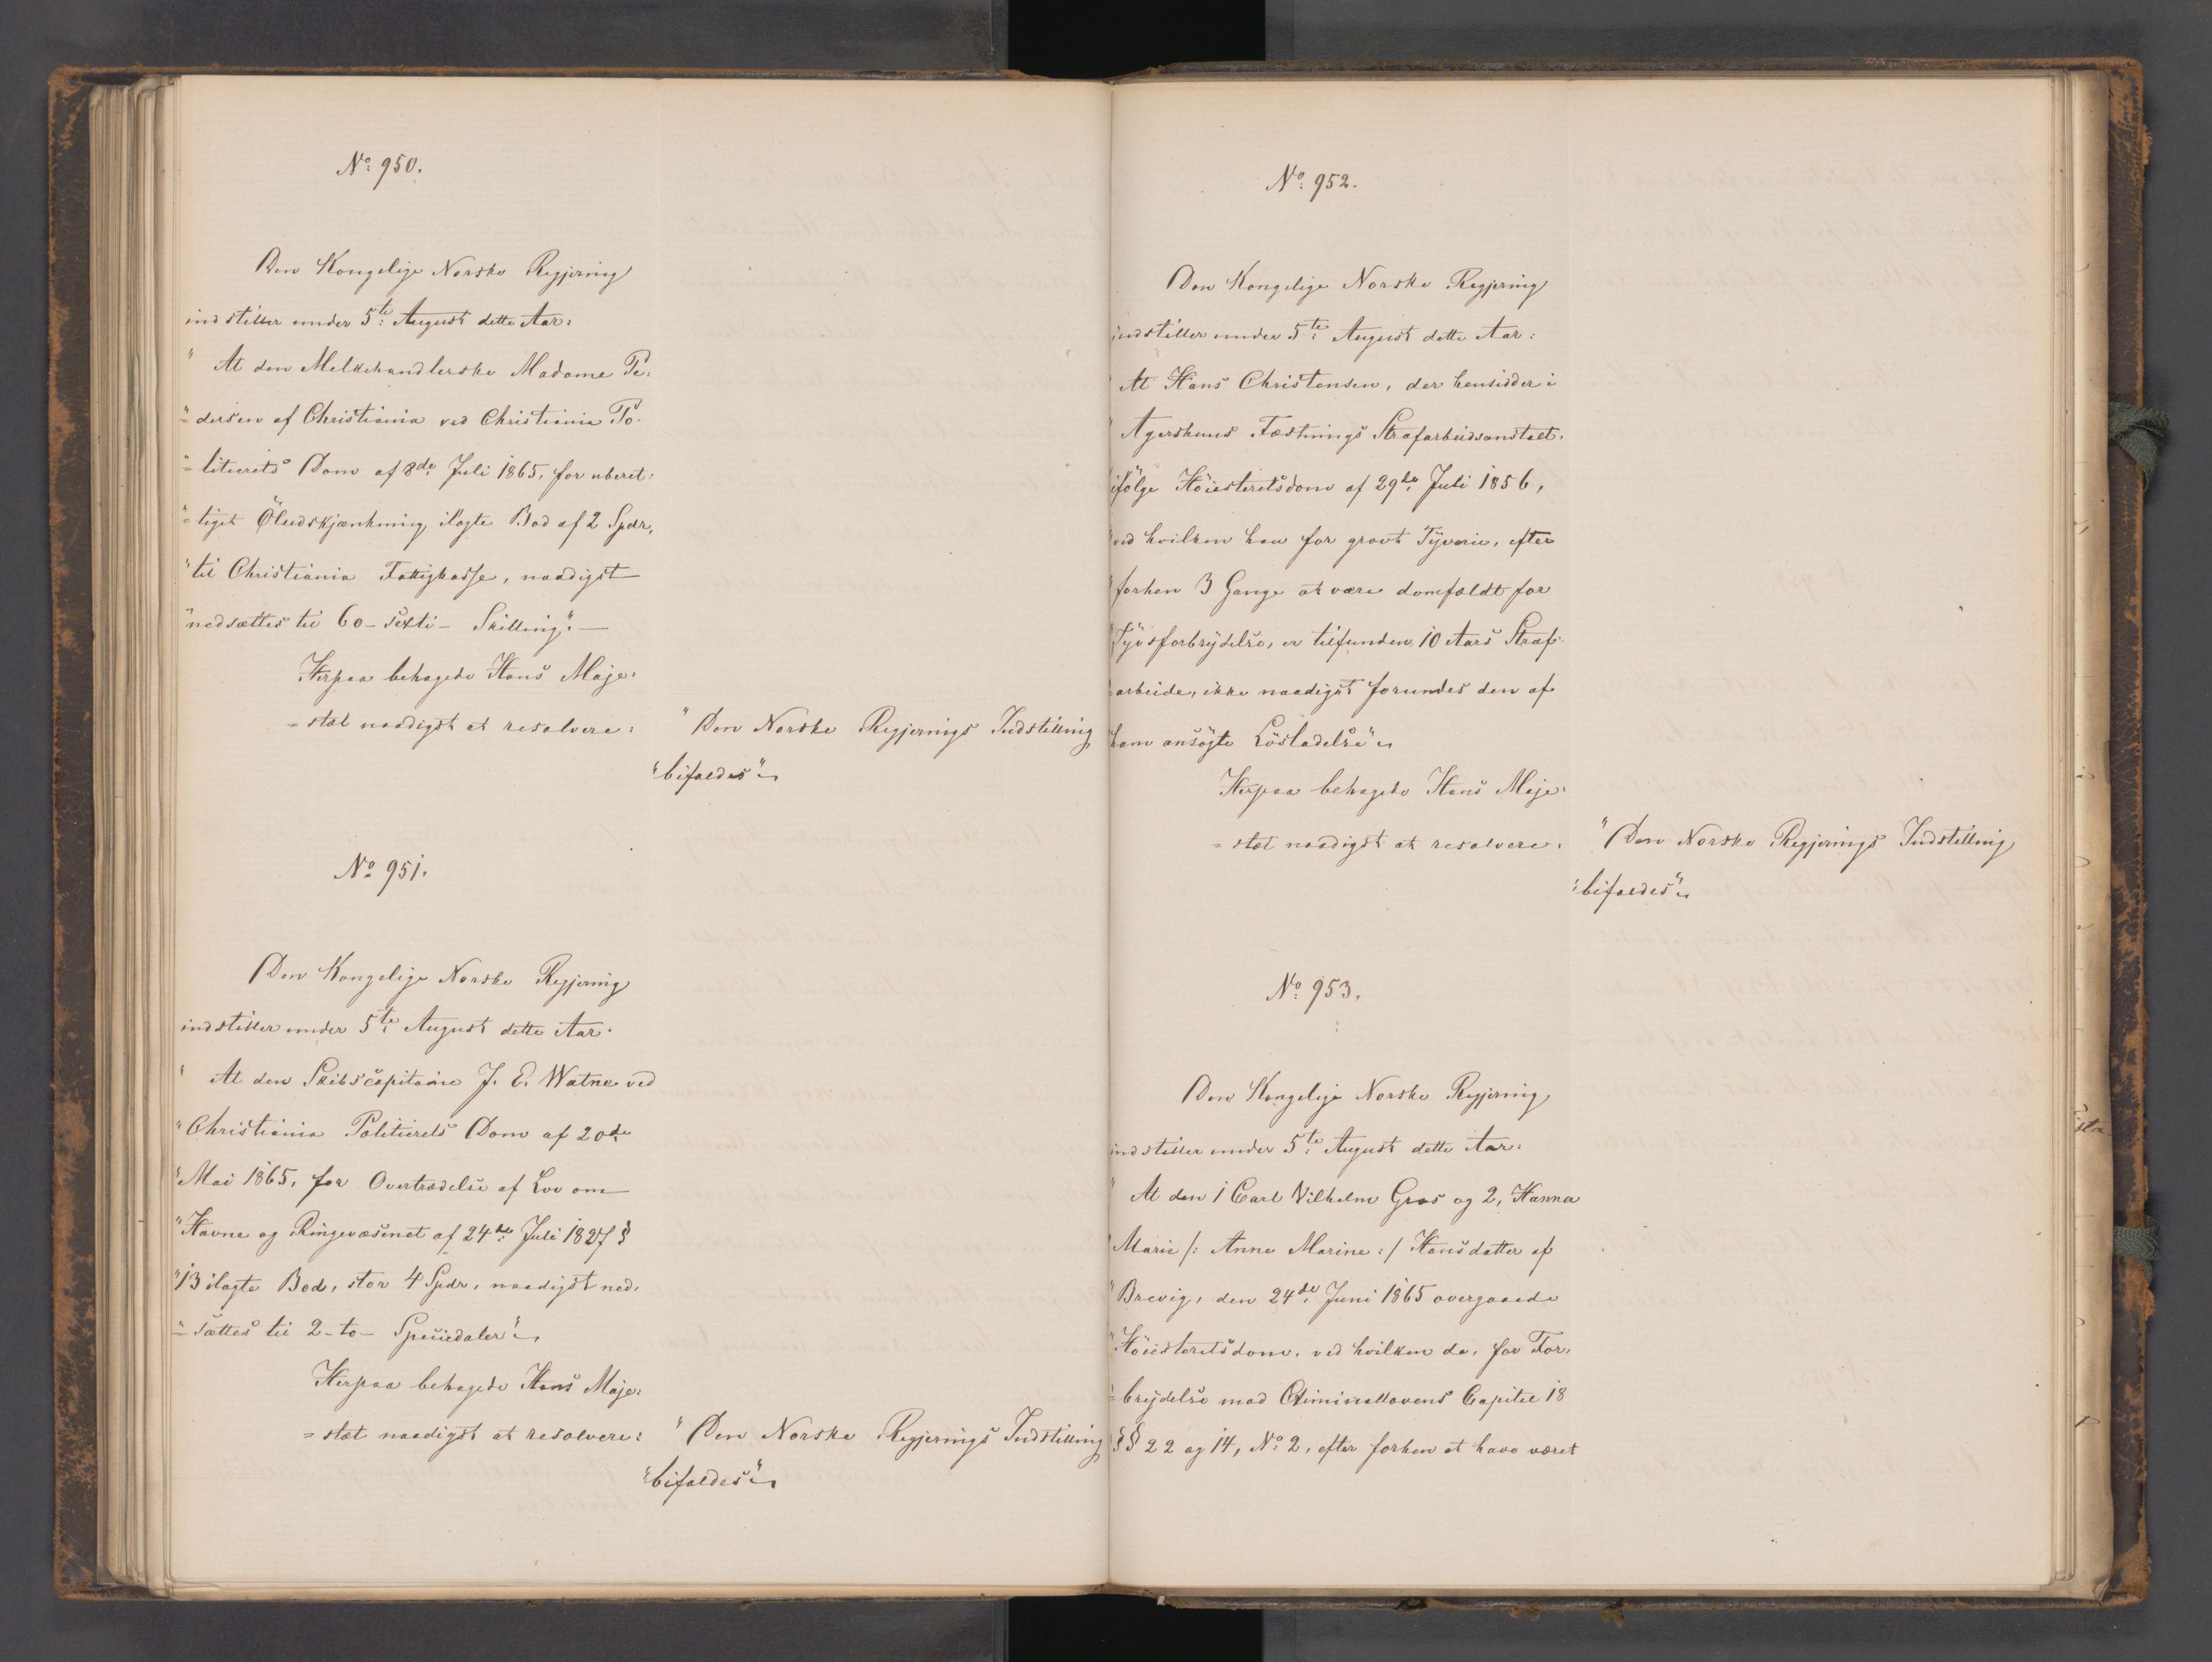 No: 950.
Den Kongelige Norske Regjering
indstiller under 5te: August dette Aar:
" At den Melkehandlerske Madame Pe:
"=dersen af Christiania ved Christiania Po-
"=litierets Dom af 8de: Juli 1865, for uberet:
"=tiget Öludskjænkning ilagte Bod af 2 Spdr,
"til Christiania Fattigkasse, naadigst
"nedsættes til 60 - sexti - Skilling". —
Herpaa behagede Hans Maje:
=stæt naadigst at resolvere:
"Den Norske Regjerings Indstilling
"bifaldes".
No 951.
Den Kongelige Norske Regjering
indstiller under 5te: August dette Aar:
" At den Skibscapitaine J. E. Watne ved
"Christiania Politierets Dom af 20de
"Mai 1865, for Overtrædelse af Lov om
"Havne og Ringevæsenet af 24de: Juli 1827 §
"13 ilagte Bod, stor 4 Spdr, naadigst ned:
"=sættes til 2 - to - Speciedaler".
Herpaa behagede Hans Maje:
=stæt naadigst at resolvere:
"Den Norske Regjerings Indstilling
"bifaldes".
No: 952.
Den Kongelige Norske Regjering
indstiller under 5te: August dette Aar:
" At Hans Christensen, der hensidder i
"Agershuus Fæstnings Strafarbeidsanstalt,
ifölge Höiesteretsdom af 29de: Juli 1856,
"ved hvilken han for grovt Tyverie, efter
"forhen 3 Gange at være domfældt for
"Tyvsforbrydelse, er tilfunden 10 Aars Straf-
"=arbeide, ikke naadigst forundes den af
"ham ansögte Lösladelse".
Herpaa behagede Hans Maje:
=stæt naadigst at resolvere:
"Den Norske Regjerings Indstilling
"bifaldes".
No: 953.
Den Kongelige Norske Regjering
indstiller under 5te: August dette Aar:
" At den 1 Carl Vilhelm Gros og 2, Hanna
"Marie /: Anne Marine :/ Hansdatter af
"Brevig, den 24de: Juni 1865 overgaaede
"Höiesteretsdom, ved hvilken de, for For:
"=brydelse mod Criminallovens Capitel 18
§§ 22 og 14, No: 2, efter forhen at have været